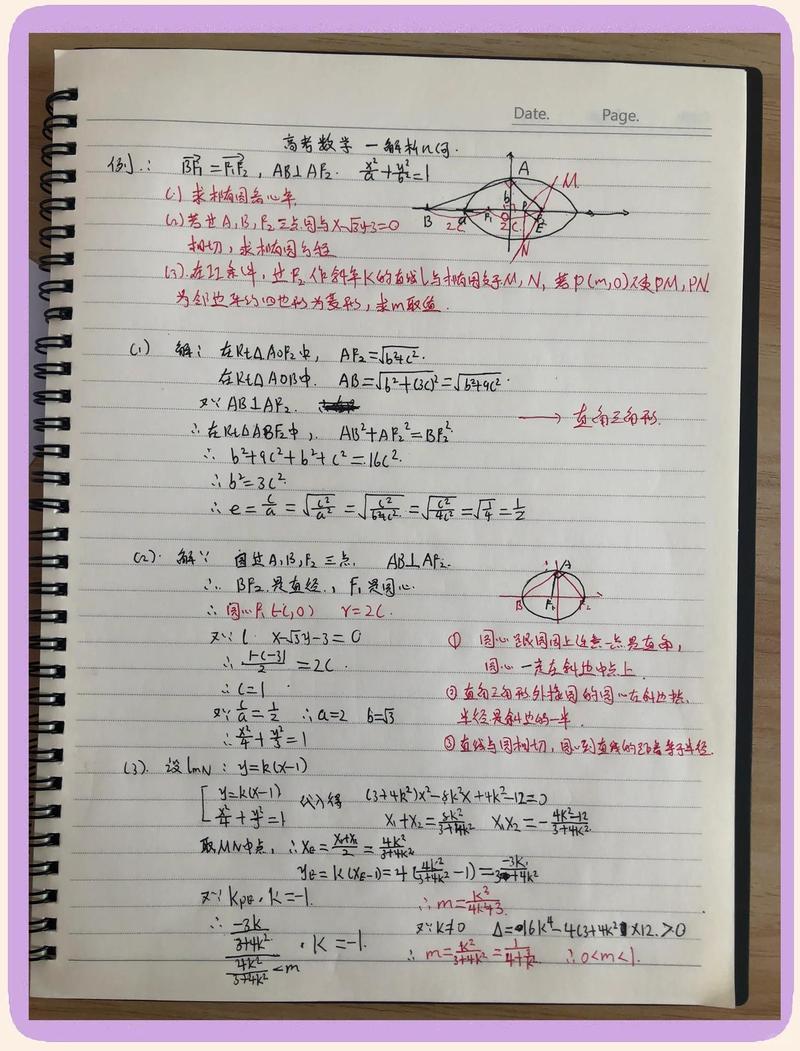 Date. Page.
高考数学 — 解析几何.
例1.: BF₁→ = F₁F₂→, AB⊥AF₂. x²/a + y²/b² = 1
(1) 求椭圆离心率.
(2) 若过 A, B, F₂ 三点圆与 x-√3y-3=0
相切, 求椭圆方程
(3). 在(2)条件, 过F₂作斜率K的直线l与椭圆交于M, N, 若P(m,0)使PM, PN
为邻边平行四边形为菱形, 求m取值.
A M. B a F₁ b P E 2C O C N
(1) 解: 在Rt△AOF₂中, AF₂=√(b²+c²).
在Rt△AOB中. AB=√(b²+(3c)²)=√(b²+9c²).
又∵ AB⊥AF₂.
→ 直角三角形.
∴在Rt△ABF₂中, AB²+AF₂²=BF₂².
∴ b²+9c²+b²+c²=16c².
∴ b²=3c².
∴ e=c/a=√(c²/a²)=√(c²/(b²+c²))=√(c²/4c²)=√(1/4)=1/2
(2). 解∵ 圆过A, B, F₂ 三点. AB⊥AF₂.
∴ BF₂是直径, F₁是圆心.
∴ 圆心F₁(-c,0) r=2c.
A B F₁ F₂
又∵ l x-√3y-3=0
∴ |-c-3|/2=2c.
∴ c=1
又∵ c/a=1/2 ∴a=2 b=√3
∴ x²/4+y²/3=1
① 圆心
圆上任意一点是直角,
圆心一定在斜边中点上.
② 直角三角形外接圆的圆心在斜边
半径是斜边的一半.
③ 直线与圆相切, 圆心到直线的距离等于半径.
(3). 设lMN: y=k(x-1)
[ y=k(x-1) x²/4+y²/3=1 代入得 (3+4k²)x²-8k²x+4k²-12=0
x₁+x₂=8k²/(3+4k²) x₁x₂=-(4k²-12)/(3+4k²).
取MN中点, ∴x_E=(x₁+x₂)/2=4k²/(3+4k²)
y_E=k(x_E-1)=4(4k²/(3+4k²)-1)=-3k/(3+4k²)
又∵ k_PE·k=-1. ∴m=k³/(4k²+3).
∴ (-3k/(3+4k²))/(4k²/(3+4k²)<m)·k=-1.
又∵k≠0 Δ=16k⁴-4(3+4k²)×12.>0
∴ m=k²/(3+4k²)=1/(4+ ∴0<m<1.